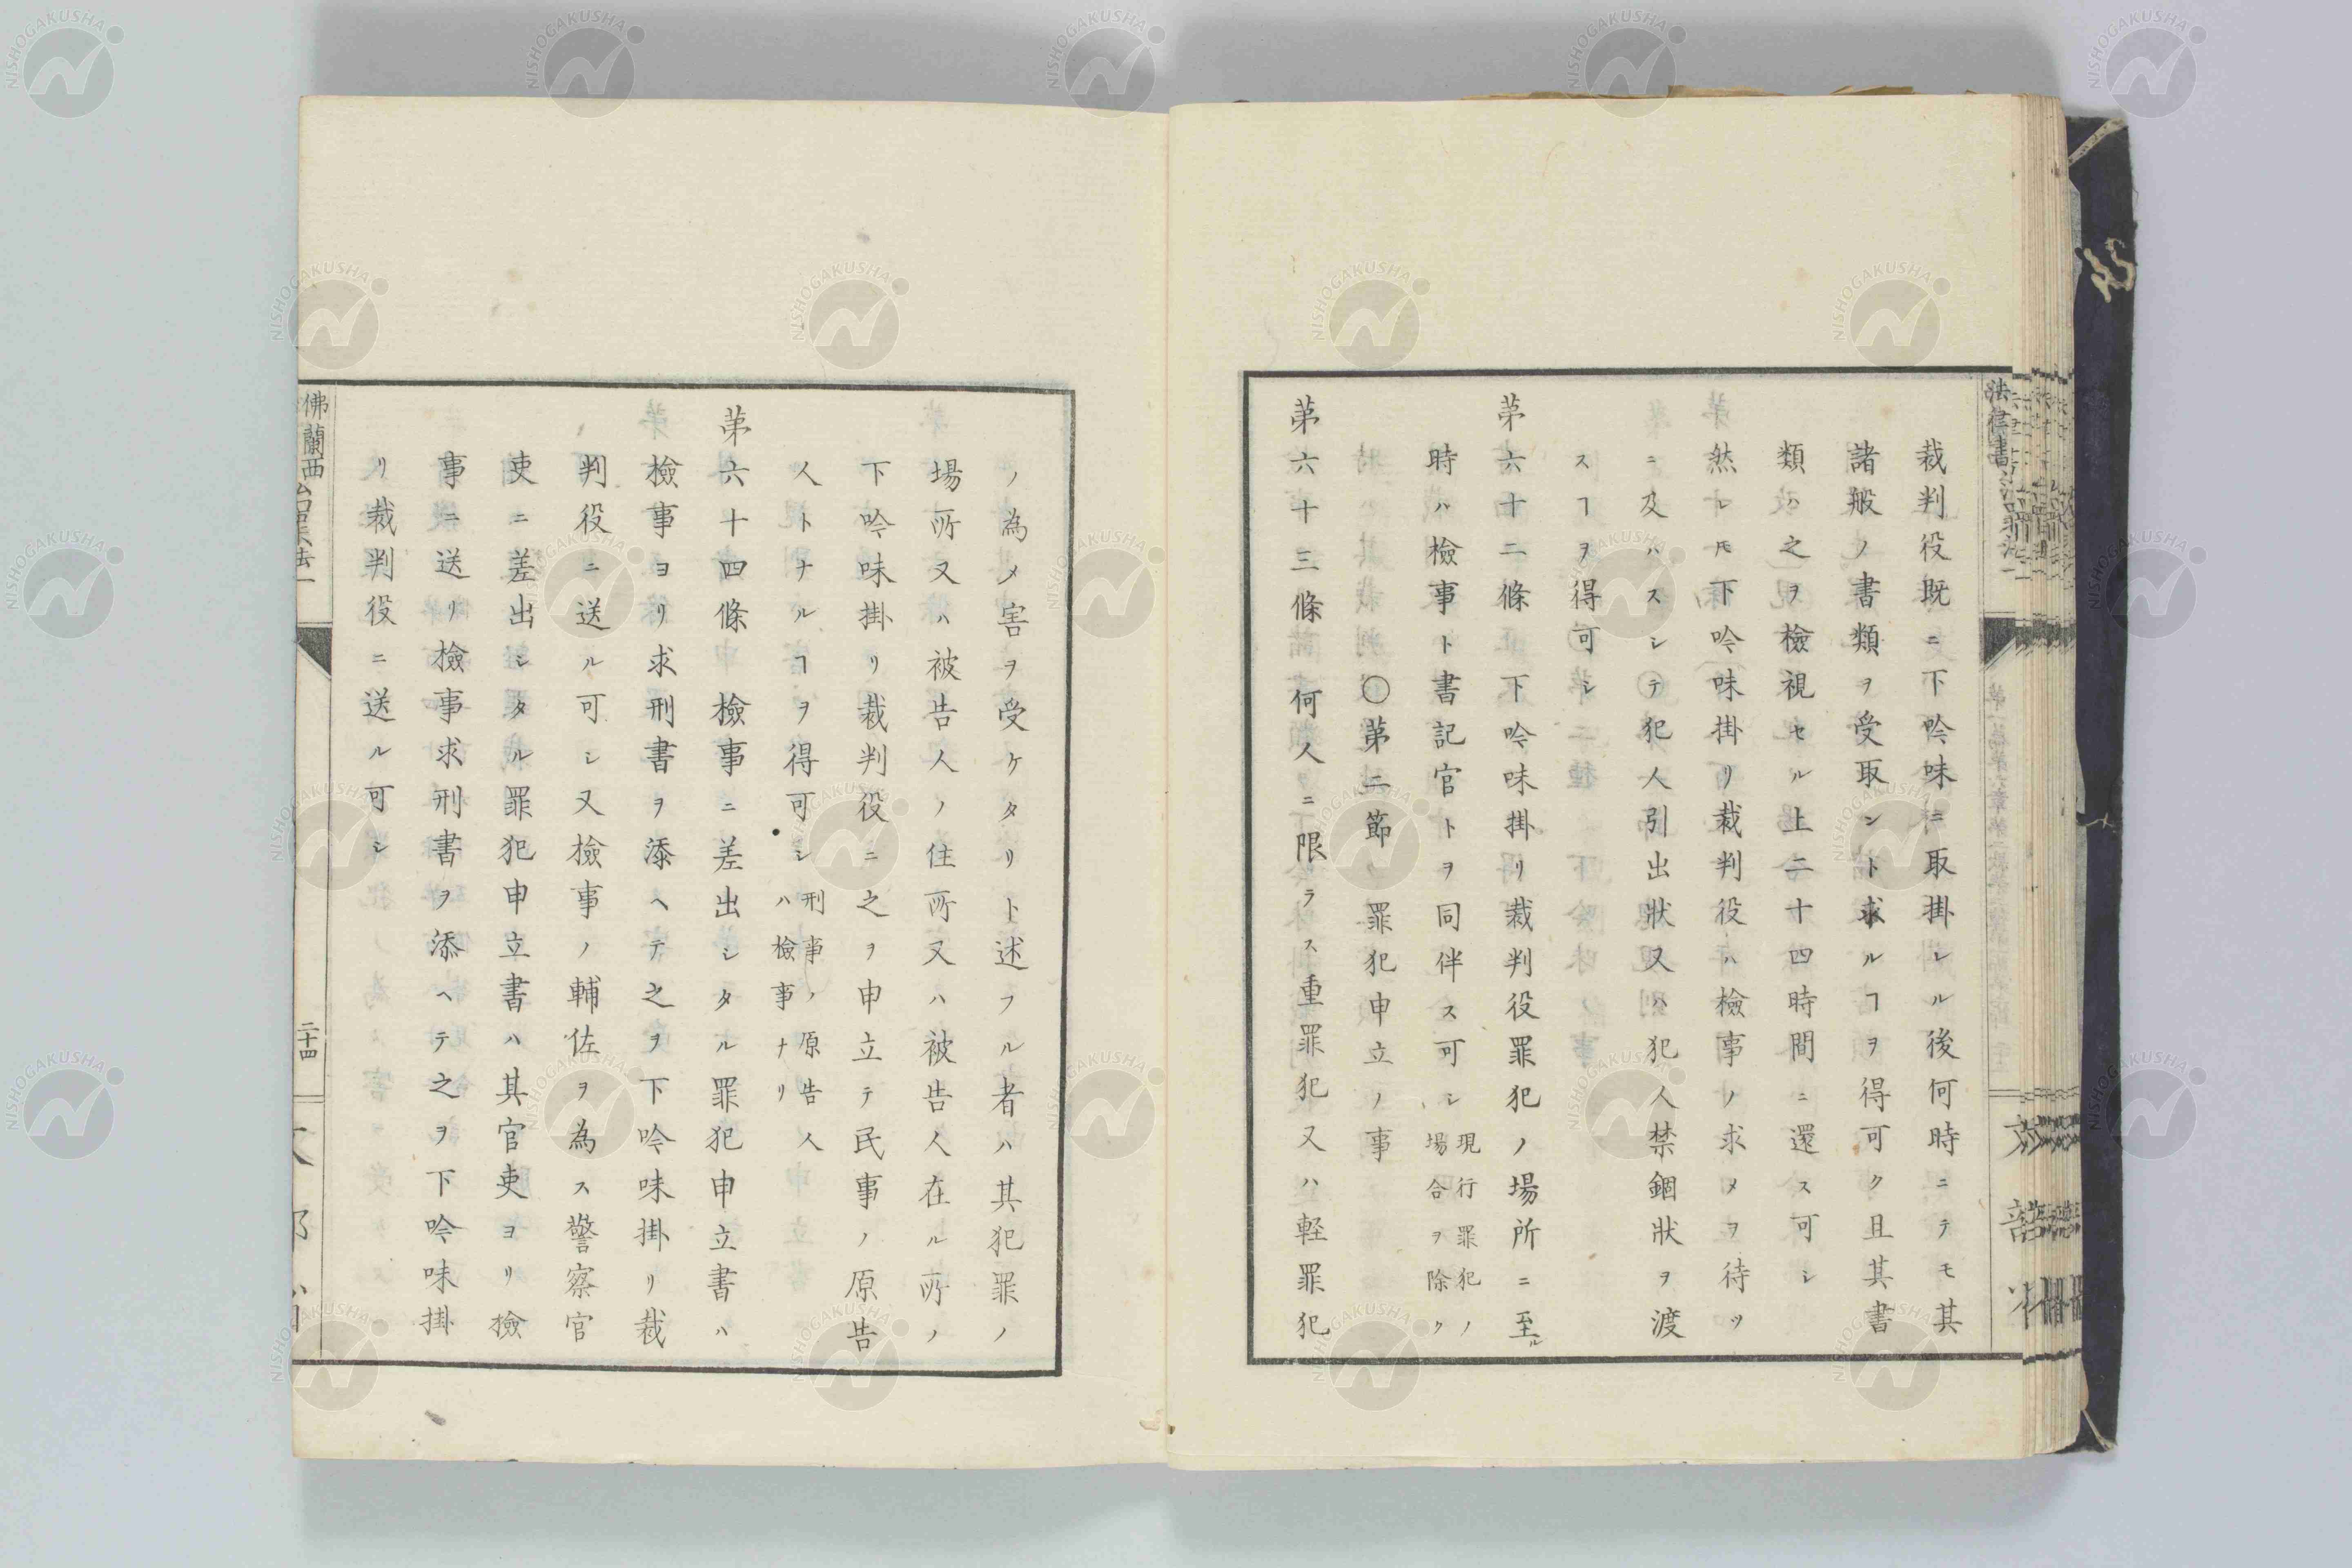 裁判役既ニ下吟味ニ取掛レル後何時ニテモ其
諸般ノ書類ヲ受取ントルヿヲ得可ク且其書
類ハ之ヲ檢視セル上二十四時間ニ還ス可シ
然レ𪜈下吟味掛リ裁判役ハ檢事ノ求メヲ待ツ
ニ及ハスシテ犯人引出狀又ハ犯人禁錮狀ヲ渡
スヿヲ得可シ
第六十二條 下吟味掛リ裁判役罪犯ノ場所ニ至ル
時ハ檢事ト書記官トヲ同伴ス可シ 現行罪犯ノ
場合ヲ除ク
〇第二節ノ罪犯申立ノ事
第六十三條 何人ニ限ラス重罪犯又ハ軽罪犯
ノ為メ害ヲ受ケタリト述フル者ハ其犯罪ノ
場所又ハ被告人ノ住所又ハ被告人在ル所ノ
下吟味掛リ裁判役ニ之ヲ申立テ民事ノ原告
人トナルヿヲ得可シ 刑事ノ原告人
ハ檢事ナリ
第六十四條 檢事ニ差出シタル罪犯申立書ハ
檢事ヨリ求刑書ヲ添ヘテ之ヲ下吟味掛リ裁
判役ニ送ル可シ又檢事ノ輔佐ヲ為ス警察官
吏ニ差出シタル罪犯申立書ハ其官吏ヨリ檢
事ニ送リ檢事求刑書ヲ添ヘテ之ヲ下吟味掛
リ裁判役ニ送ル可シ
佛蘭西
二十四
法律書
NISHOGAKUSHA